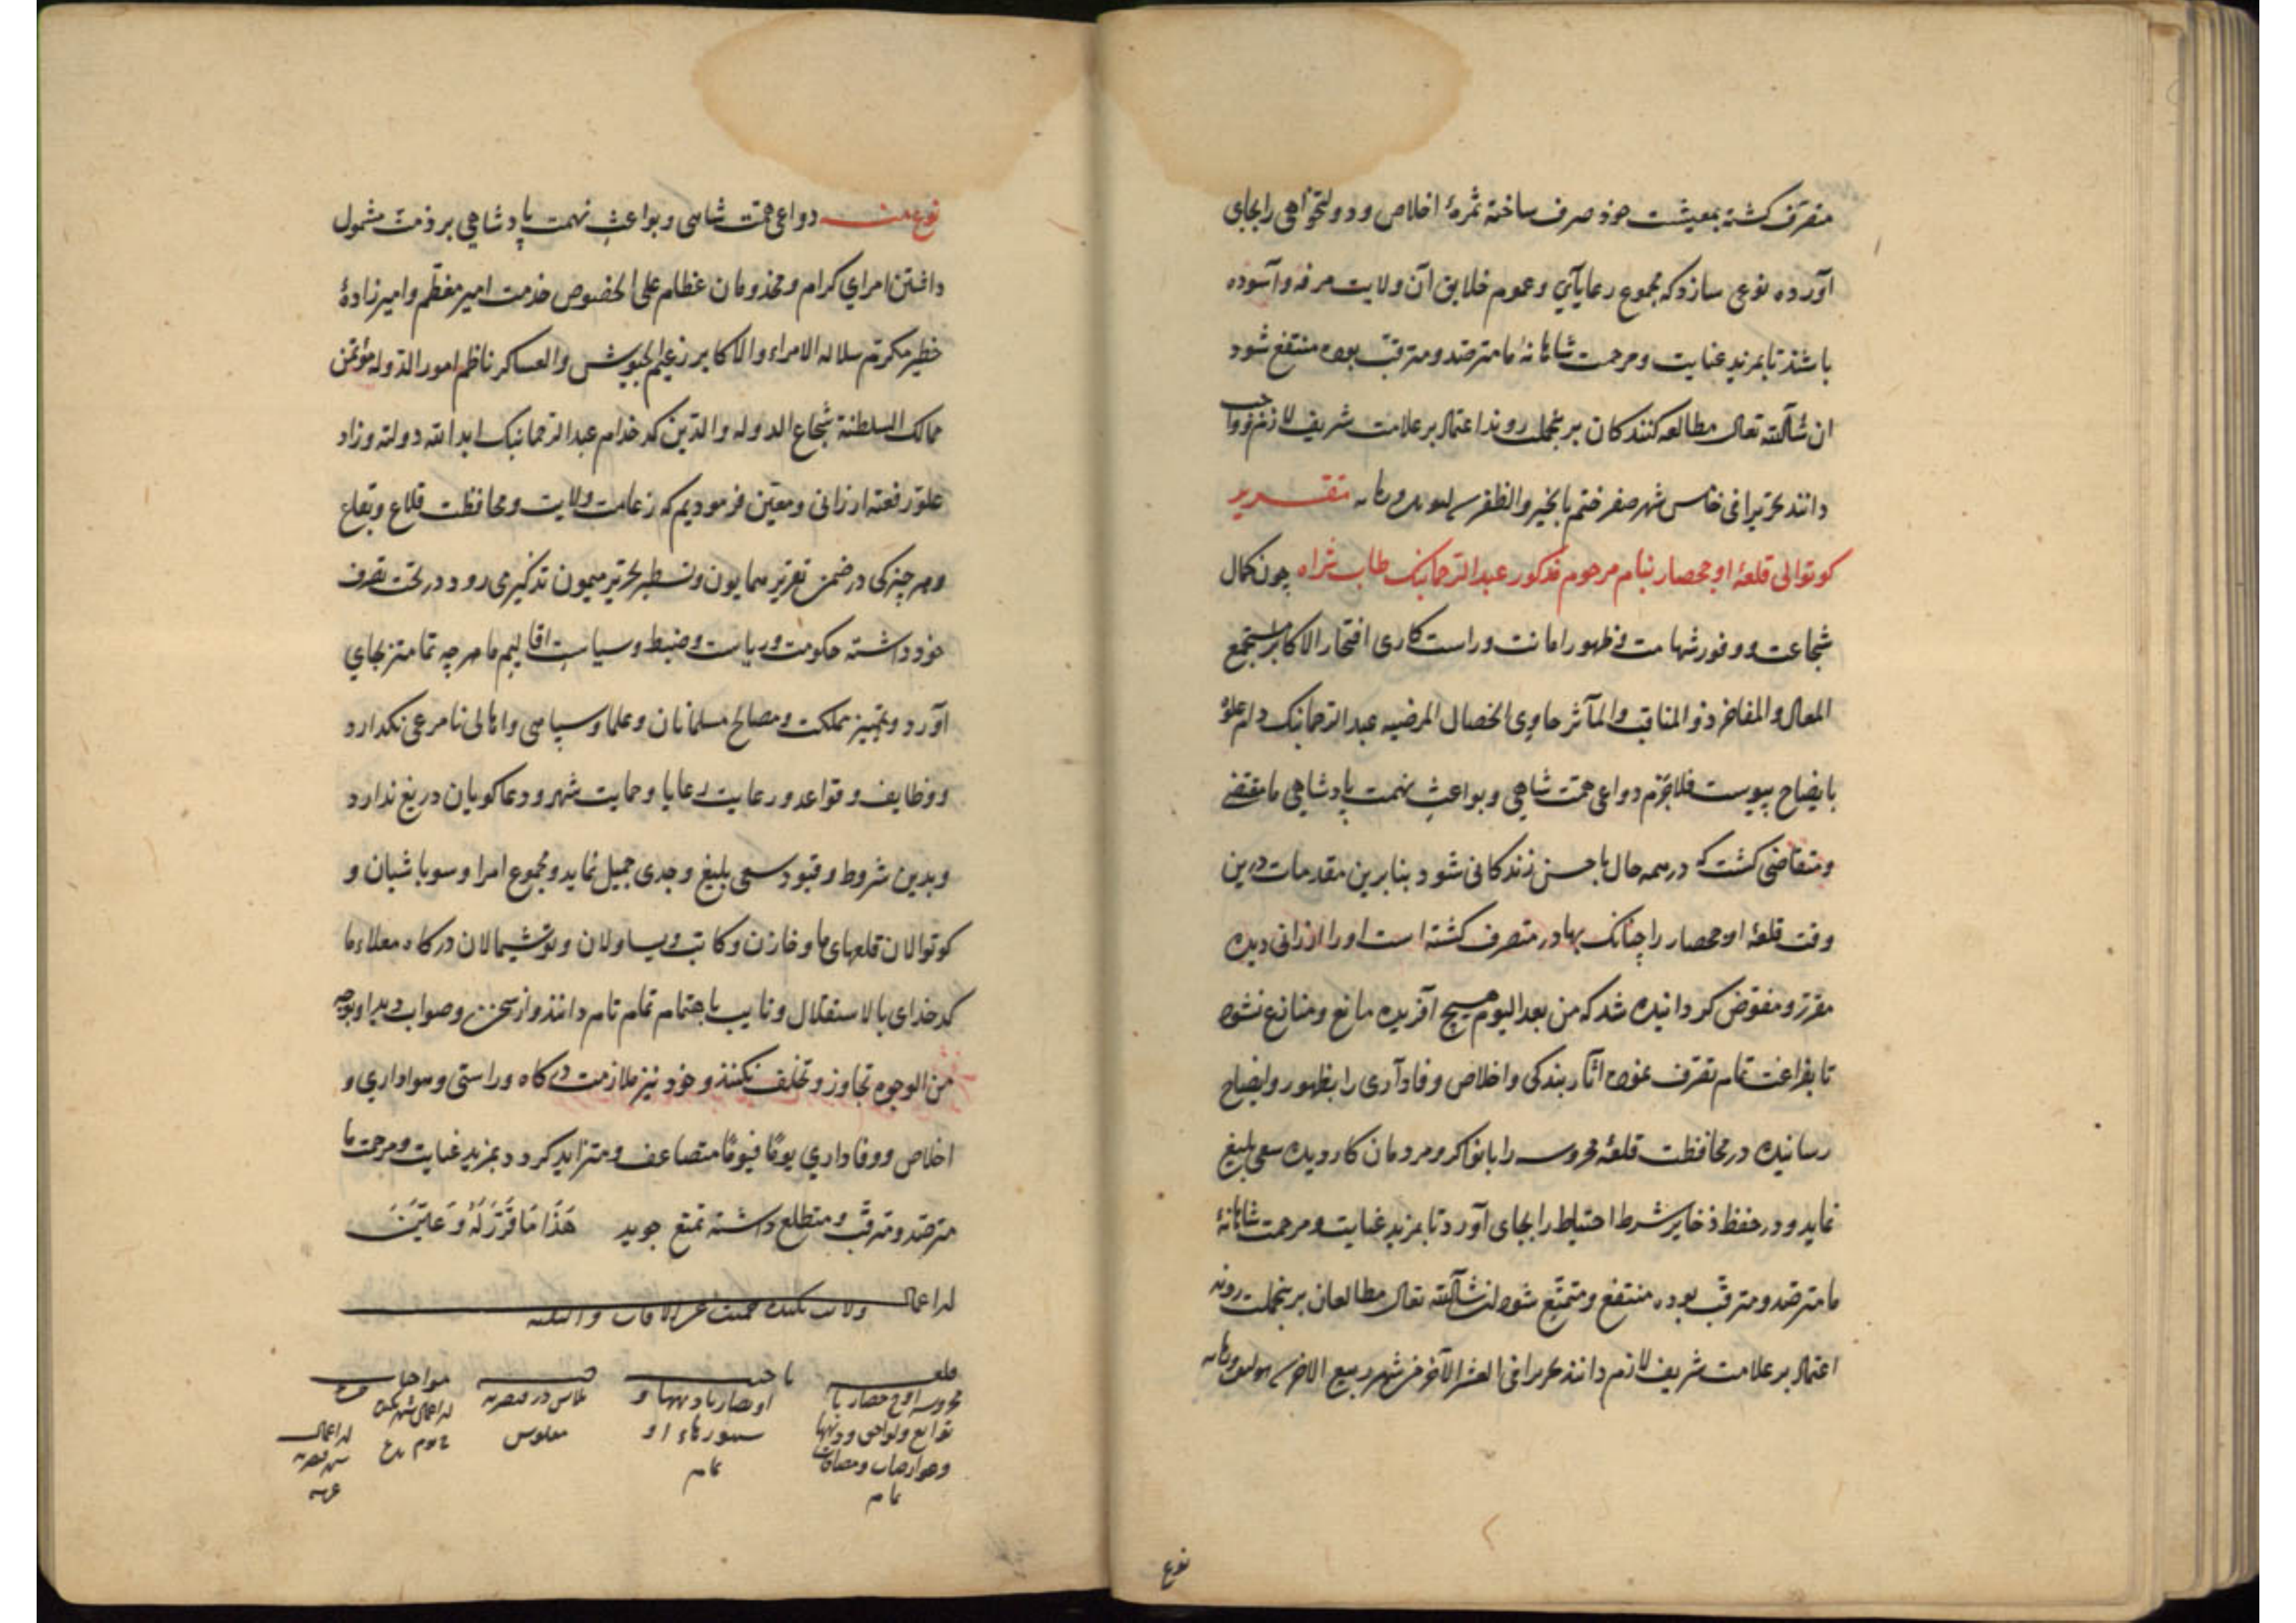 متصرف کشته بمعیشت خوذ صرف ساخته ثمرهٔ اخلاص و دولتخواهی را بجای
آورده نوعی سازد که مجموع رعایای و عموم خلایق آن ولایت مرفه و آسوده
باشند تا بمزید عنایت و مرحمت شاهانهٔ ما مترصد و مترقب بوده منتفع شود
ان شآالله تعالی مطالعه کنندکان برینجملت روند اعتماد بر علامت شریف لازم و واجب
دانند تحریرا فی خامس شهر صفر ختم بالخیر والظفر تقریر
کوتوالی قلعهٔ اوجحصار بنام مرحوم مذکور عبدالرحمانبک طاب ثراه چون کمال
شجاعت و وفور شهامت و ظهور امانت و راست کاری افتخار الاکابر مستجمع
المعالی والمفاخر ذو المناقب والمآثر حاوی الخصال المرضیه عبدالرحمانبک دام علوه
بایضاح پیوست فلاجرم دواعی همت شاهی و بواعث نهمت پادشاهی ما مقتضی
و متقاضی کشت که در همه حال باحسن زندکانی شود بنابرین مقدمات درین
وقت قلعهٔ اوجحصار را چنانک بهادر متصرف کشته است اورا ارزانی دیده
مقرر و مفوض کردانیده شد که من بعد الیوم هیچ آفریده مانع و منازع نشود
تا بفراغت تمام تصرف نموده اثار بندکی و اخلاص و فادآری را بظهور و ایضاح
رسانیده در محافظت قلعهٔ محروسه را با نوکر و مردمان کاردیده سعی بلیغ
نماید و در حفظ ذخایر شرط احتیاط را بجای آورد تا بمزید عنایت و مرحمت شاهانهٔ
ما مترصد و مترقب بوده منتفع و متمتع شود ان شآالله تعالی مطالعان برینجملت روند
اعتماد بر علامت شریف لازم دانند تحریرا فی العشر الآخر من شهر ربیع الاخر
نوع
نوع منه دواعی همت شاهی و بواعث نهمت پادشاهی بر ذمت مشمول
داشتن امرای کرام و مخذومان عظام علی الخصوص خدمت امیر معظم و امیرزادهٔ
خطیر مکرم سلاله الامراء والاکابر زعیم الجیوش والعساکر ناظم امور الدوله مؤتمن
ممالک السلطنة شجاع الدوله والدین کدخدام عبدالرحمانبک ابد الله دولته وزاد
علو رفعته ارزانی و معین فرمودیم که زعامت ولایت و محافظت قلاع و بقاع
و هر چیزکی در ضمن تعزیز همایون و تسطیر تحریر میمون تذکیر می رود در تحت تصرف
خوذ داشته حکومت و ریاست و ضبط و سیاست اقالیم ما هرچه تمامتر بجای
آورد و تمییز مملکت و مصالح مسلمانان و علما و سپاهی و اهالی نامرعی نکدارد
و وظایف و قواعد و رعایت رعایا و حمایت شهر و دعاکویان دریغ ندارد
و بدین شروط و قیود سعی بلیغ و جدی جمیل نماید و مجموع امرا و سوباشیان و
کوتوالان قلعهای ما و خازن و کاتب و یساولان و توشیمالان درکاه معلاء ما
کدخدای بالاستقلال و نایب باهتمام تمام تام دانند و از سخن و صواب دید او بوجه
من الوجوه تجاوز و تخلف نکنند و خود نیز ملازمت درکاه و راستی و هواداری و
اخلاص و وفاداری یومًا فیومًا متضاعف و متزاید کردد بمزید عنایت و مرحمت ما
مترصد و مترقب و متطلع داشته تمتع جوید هَذَا مَا قُرِّرَ لَهُ وَ عُیِّنَ
قلعه
محروسه اوج حصار با
توابع و نواحی و دیهها
تمام